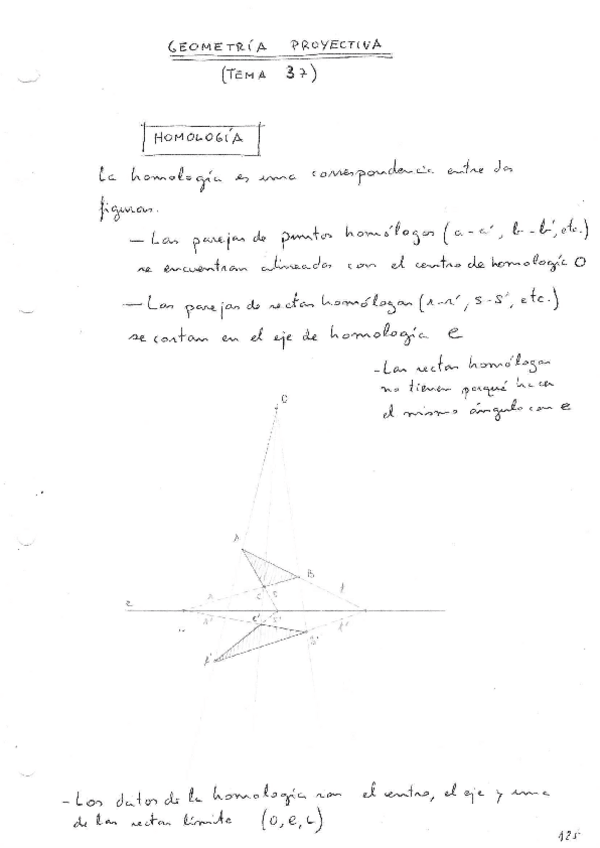 GEOMETRÍA PROYECTIVA
(TEMA 37)
HOMOLOGÍA
La homología es una correspondencia entre dos
figuras.
- Las parejas de puntos homólogos (a-a', b-b', etc.)
se encuentran alineados con el centro de homología O
- Las parejas de rectas homólogas (r-r', s-s', etc.)
se cortan en el eje de homología e
- Las rectas homólogas
no tienen porqué hacer
el mismo ángulo con e
O
A
B
C
e
C'
B'
A'
- Los datos de la homología son el centro, el eje y una
de las rectas límite (O, e, L)
125